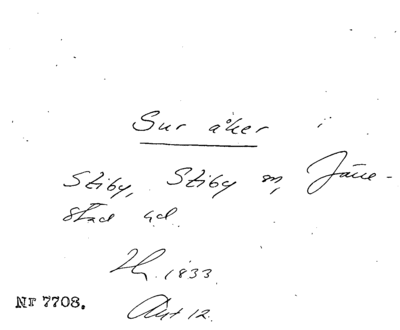 Sur åker i
Stiby, Stiby sn, Järre-
stad hd.
Th. 1833.
Nr 7708.
Avt 12.